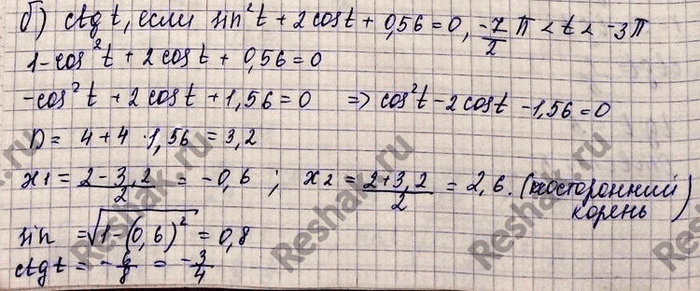 б) ctg t, если sin²t + 2cost + 0,56 = 0, -7/2 π < t < -3π
1-cos²t + 2cost + 0,56 = 0
-cos²t + 2cost + 1,56 = 0 => cos²t - 2cost - 1,56 = 0
D = 4 + 4 · 1,56 = 3,2
x1 = (2 - 3,2)/2 = -0,6 ; x2 = (2+3,2)/2 = 2,6. (посторонний корень)
sin = √(1-(0,6)²) = 0,8
ctg t = -6/8 = -3/4
Reshak.ru
Reshak.ru
Reshak.ru